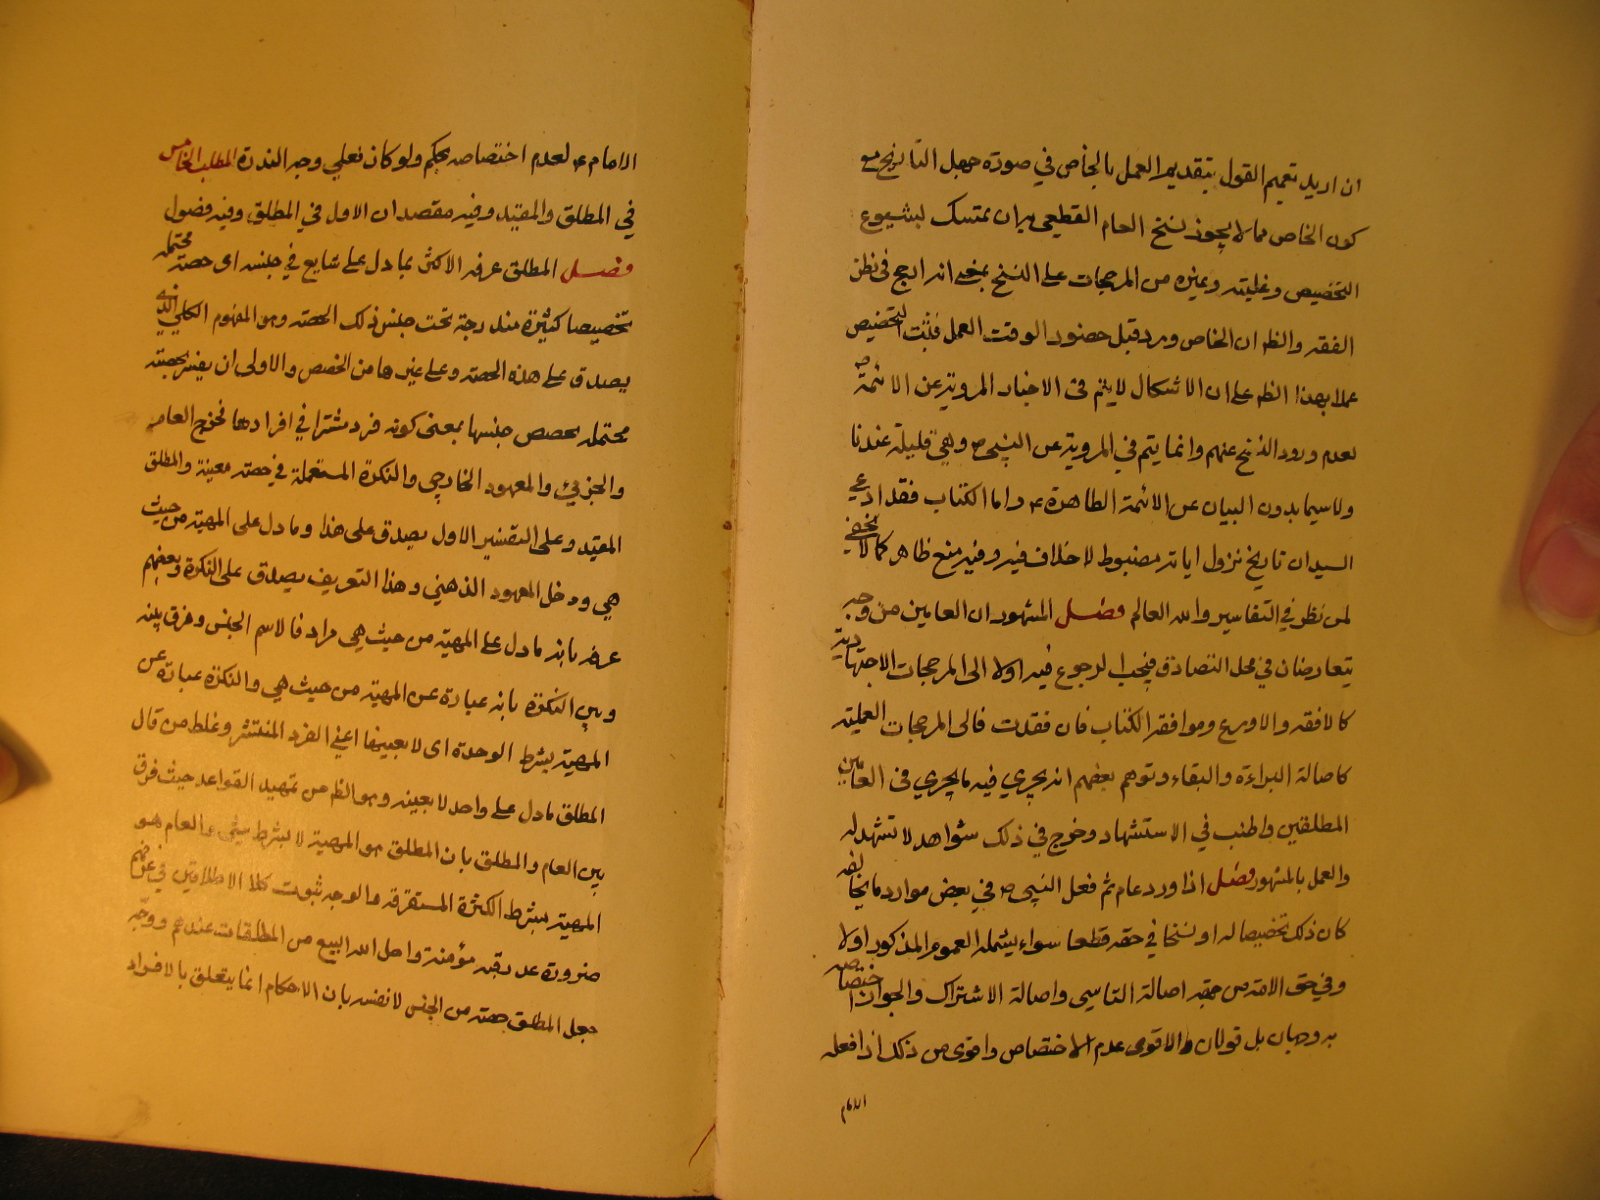 ان اريد تعميم القول بتقديم العمل بالخاص في صورة جهل التاريخ مع
كون الخاص مما لا يجوز نسخ العام القطعي به ان يتمسك بشيوع
التخصيص وغلبته وغيره من المرجحات على النسخ بمعنى انه ارجح في نظر
الفقه والظ ان الخاص ورد قبل حضور الوقت العمل فثبت التخصيص
عملا بهذا الظ على ان الاشكال لا يتم في الاخبار المروية عن الائمة ص
لعدم ورود النسخ عنهم وانما يتم في المروية عن النبي ص وهي قليلة عندنا
ولا سيما بدون البيان عن الائمة الطاهرة ع واما الكتاب فقد ادعي
السيد ان تاريخ نزول اياته مضبوط لا خلاف فيه وفيه منع ظاهر كما لا يخفي
لمن نظر في التفاسير والله العالم فصل المشهور ان العامين من وجه
يتعارضان في محل التصادق فيجب الرجوع فيه اولا الى المرجحات الاجتهادية
كالافقه والاورع وموافقة الكتاب فان فقدت فالى المرجحات العملية
كاصالة البراءة والبقاء وتوهم بعضهم انه يجري فيه ما يجري في العامين
المطلقين واطنب في الاستشهاد وخرج في ذلك شواهد لا تشهد له
والعمل بالمشهور فصل اذا ورد عام ثم فعل النبي ص في بعض موارد ما يخالفه
كان ذلك تخصيصا له او نسخا في حقه قطعا سواء يشمله العموم المذكور اولا
وفي حق الامة من جهة اصالة التاسي واصالة الاشتراك والجواز اختصاصه
به وجهان بل قولان والاقوى عدم الاختصاص واقوى من ذلك اذا فعله
الامام
الامام ع لعدم اختصاصه بحكم ولو كان فعلي وجه الندرة المطلب الخامس
في المطلق والمقيد وفيه مقصدان الاول في المطلق وفيه فصول
فصل المطلق عرفه الاكثر بما دل على شايع في جنسه اى حصة محتملة
تحصيصا كثيرة مندرجة تحت جنس ذلك الحصة وهو المفهوم الكلي الذي
يصدق على هذه الحصة وعلى غيرها من الحصص والاولى ان يفسر بحصة
محتملة حصص جنسها بمعنى كونه فرد منتشرا في افرادها فخرج العام
والجزئي والمعهود الخارجي والنكرة المستعملة في حصة معينة والمطلق
المقيد وعلى التفسير الاول يصدق على هذا وما دل على المهية من حيث
هي ودخل المعهود الذهني وهذا التعريف يصدق على النكرة وبعضهم
عرفه بانه ما دل على المهية من حيث هي مرادفا لاسم الجنس وفرق بينه
وبين النكرة بانه عبارة عن المهية من حيث هي والنكرة عبارة عن
المهية بشرط الوحدة اى لا بعينها اعني الفرد المنتشر وغلط من قال
المطلق ما دل على واحد لا بعينه وهو الظ من تمهيد القواعد حيث فرق
بين العام والمطلق بان المطلق هو المهية لا بشرط شئ والعام هو
المهية بشرط الكثرة المستغرقة والوجه ثبوت كلا الاطلاقين في عرفهم
ضرورة عد رقبة مؤمنة واحل الله البيع من المطلقات عندهم ووجه
جعل المطلق حصة من الجنس لا نفسه بان الاحكام انما يتعلق بالافراد